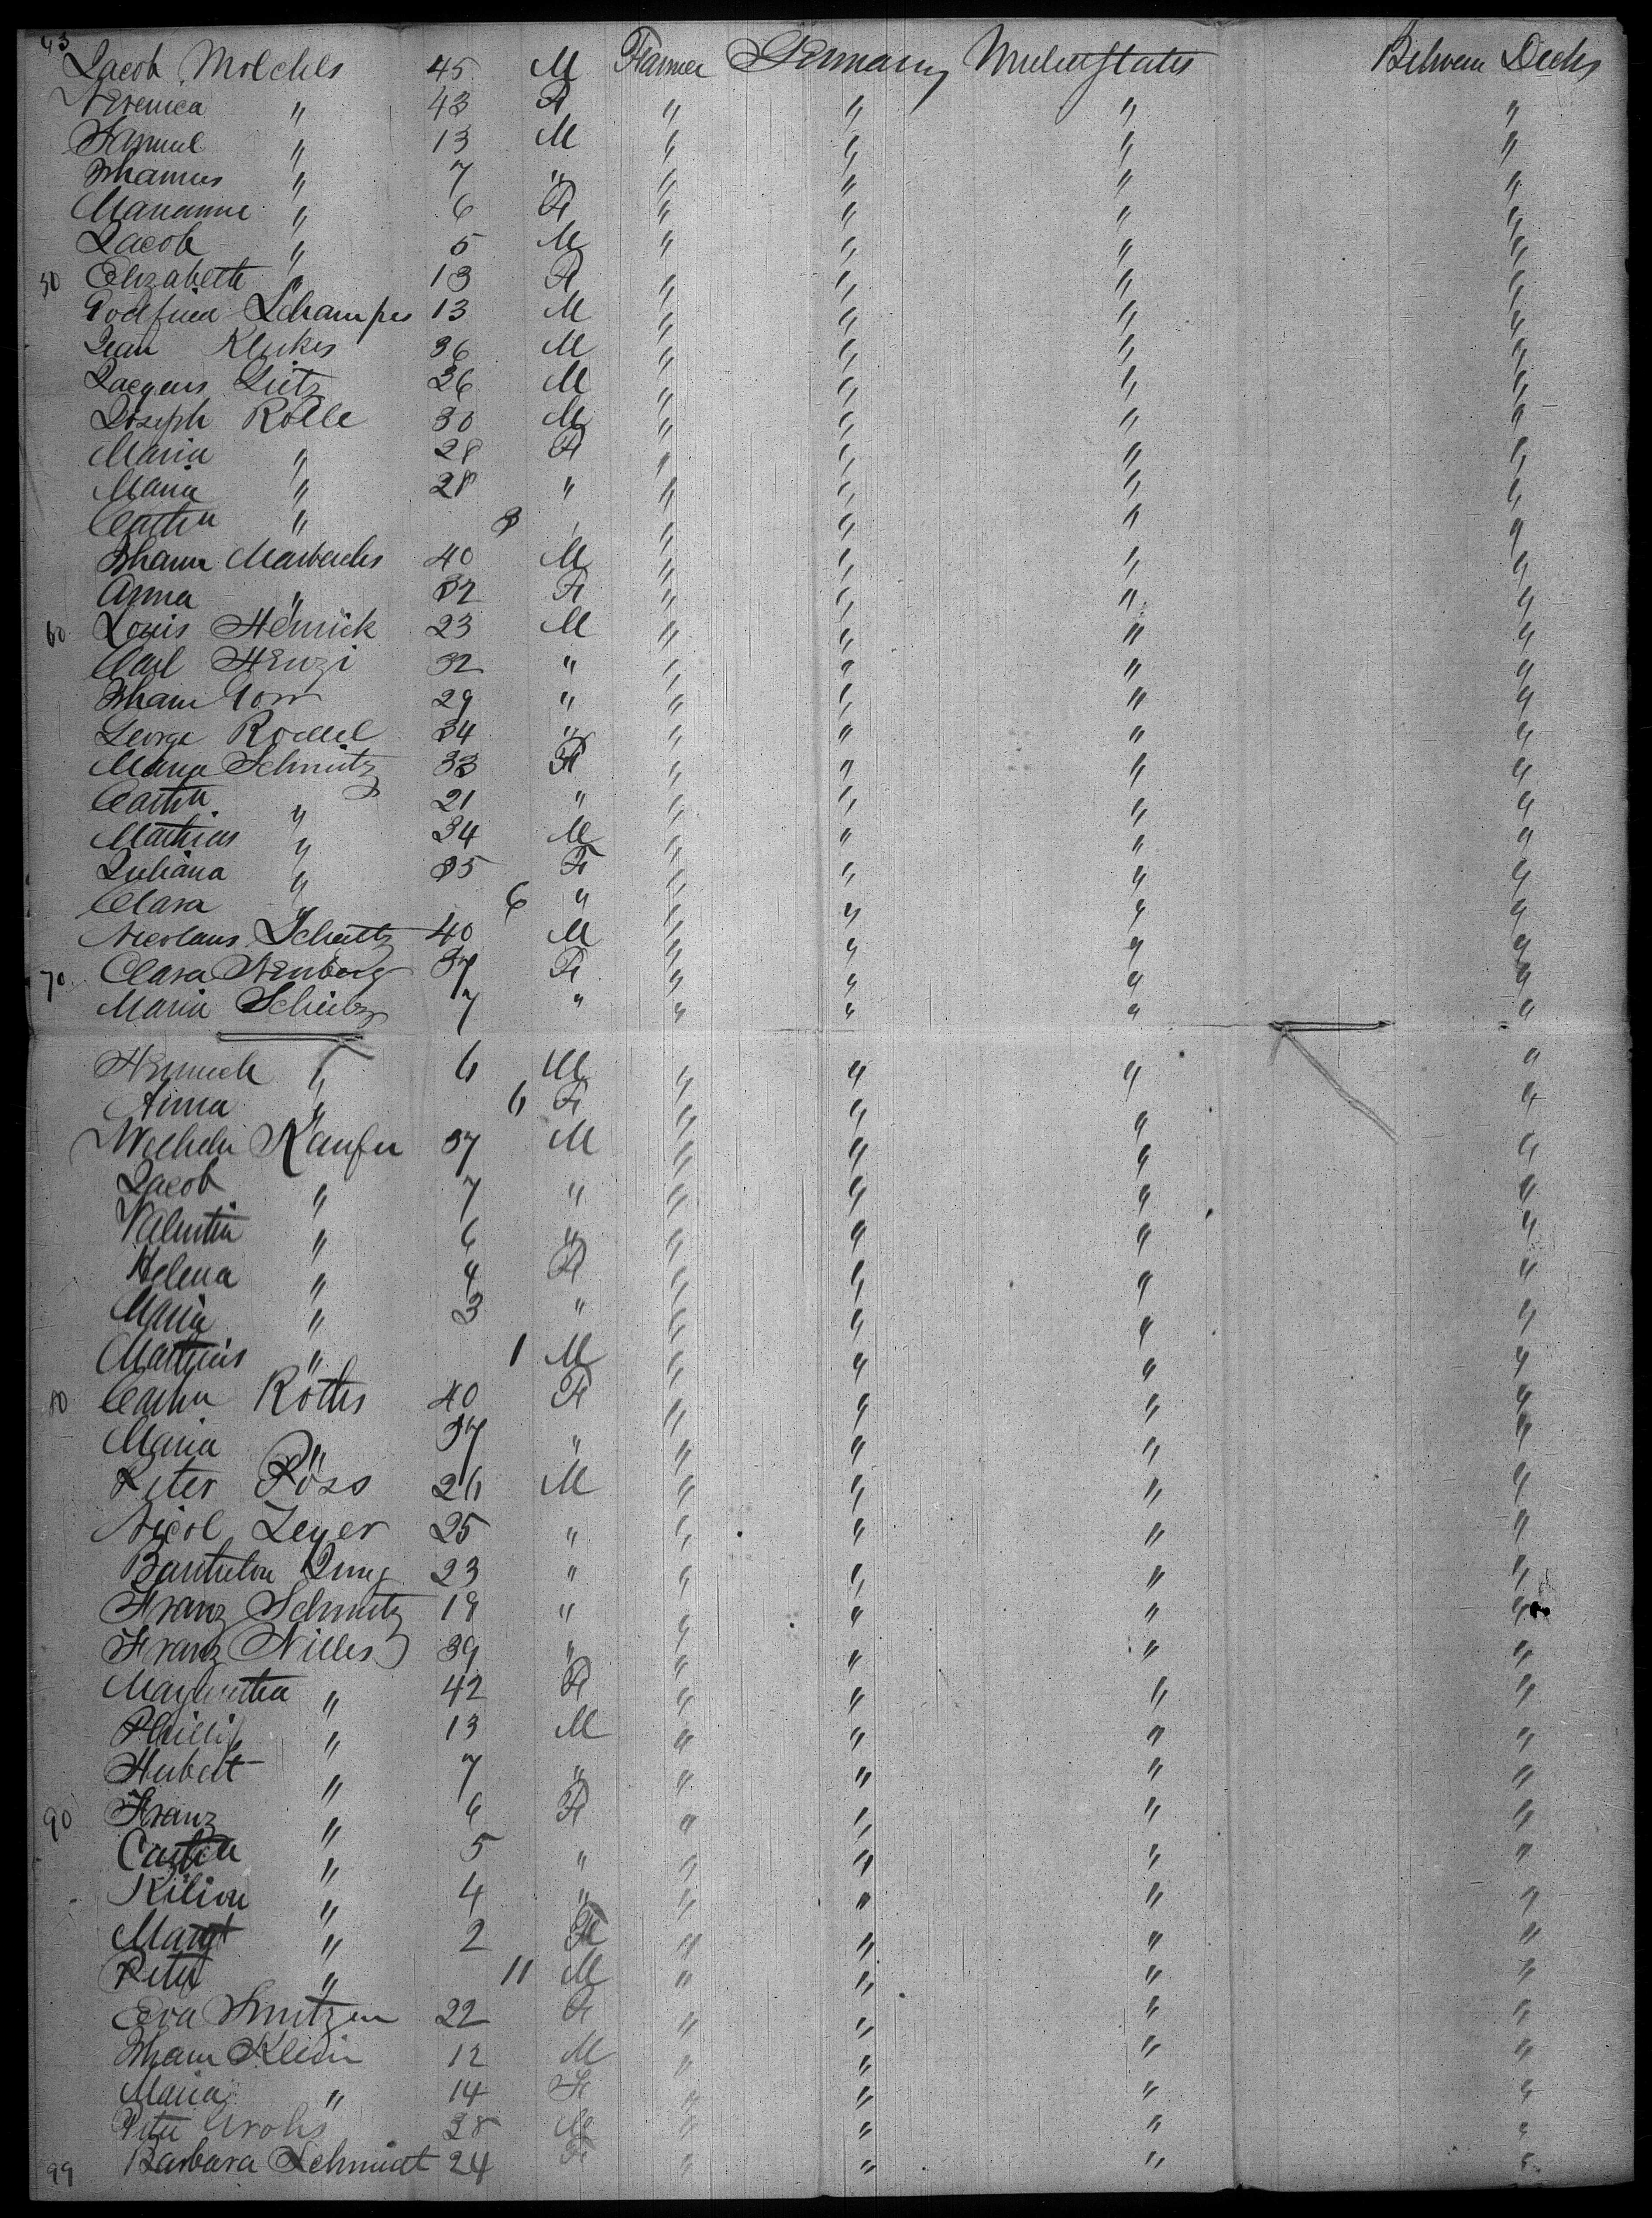 43
Jacob Molchls 45 M Farmer Germany United States Between Decks
Veronica " 43 F " " " "
Samuel " 13 M " " " "
Johannes " 7 " " " " "
Marianne " 6 F " " " "
Jacob " 5 M " " " "
50 Elizabeth " 13 F " " " "
Godfried Schampes 13 M " " " "
Jean Klukes 36 M " " " "
Lutz 26 M " " " "
Joseph Rolle 30 M " " " "
Maria " 28 F " " " "
Maria " 28 " " " " "
Cathn " 3 " " " " "
Johann Marbachs 40 M " " " "
Anna " 32 F " " " "
60 Louis Henrick 23 M " " " "
Carl Henzi 32 " " " " "
Johann 29 " " " " "
George 34 " " " " "
Maria Schmitz 33 F " " " "
Cathn " 21 " " " " "
Mathias " 34 M " " " "
Juliana " 35 F " " " "
Clara " 6 " " " " "
Nicolaus Schultz 40 M " " " "
70 Clara Neuberg 37 F " " " "
Maria 7 " " " " "
Heinrich " 6 M " " " "
Anna " 6 F " " " "
Wilhelm Kaufer 37 M " " " "
Jacob " 7 " " " " "
Valentin " 6 " " " " "
Helena " 4 F " " " "
Maria " 3 " " " " "
Mathias " 1 M " " " "
80 Cathn Roths 40 F " " " "
Maria " 37 " " " " "
Peter Röss 26 M " " " "
Nicol Zeyer 25 " " " " "
Jung 23 " " " " "
Franz Schmitz 19 " " " " "
Franz Nilles 39 " " " " "
Margaretha " 42 F " " " "
Phillip " 13 M " " " "
Hubert " 7 " " " " "
90 Franz " 6 F " " " "
Cathn " 5 " " " " "
Kilian " 4 " " " " "
Margt " 2 F " " " "
Peter " 11 M " " " "
Eva Smitzen 22 F " " " "
Johann Klein 12 M " " " "
Maria " 14 F " " " "
Peter Grohs 28 M " " " "
99 Barbara Schmidt 24 F " " " "